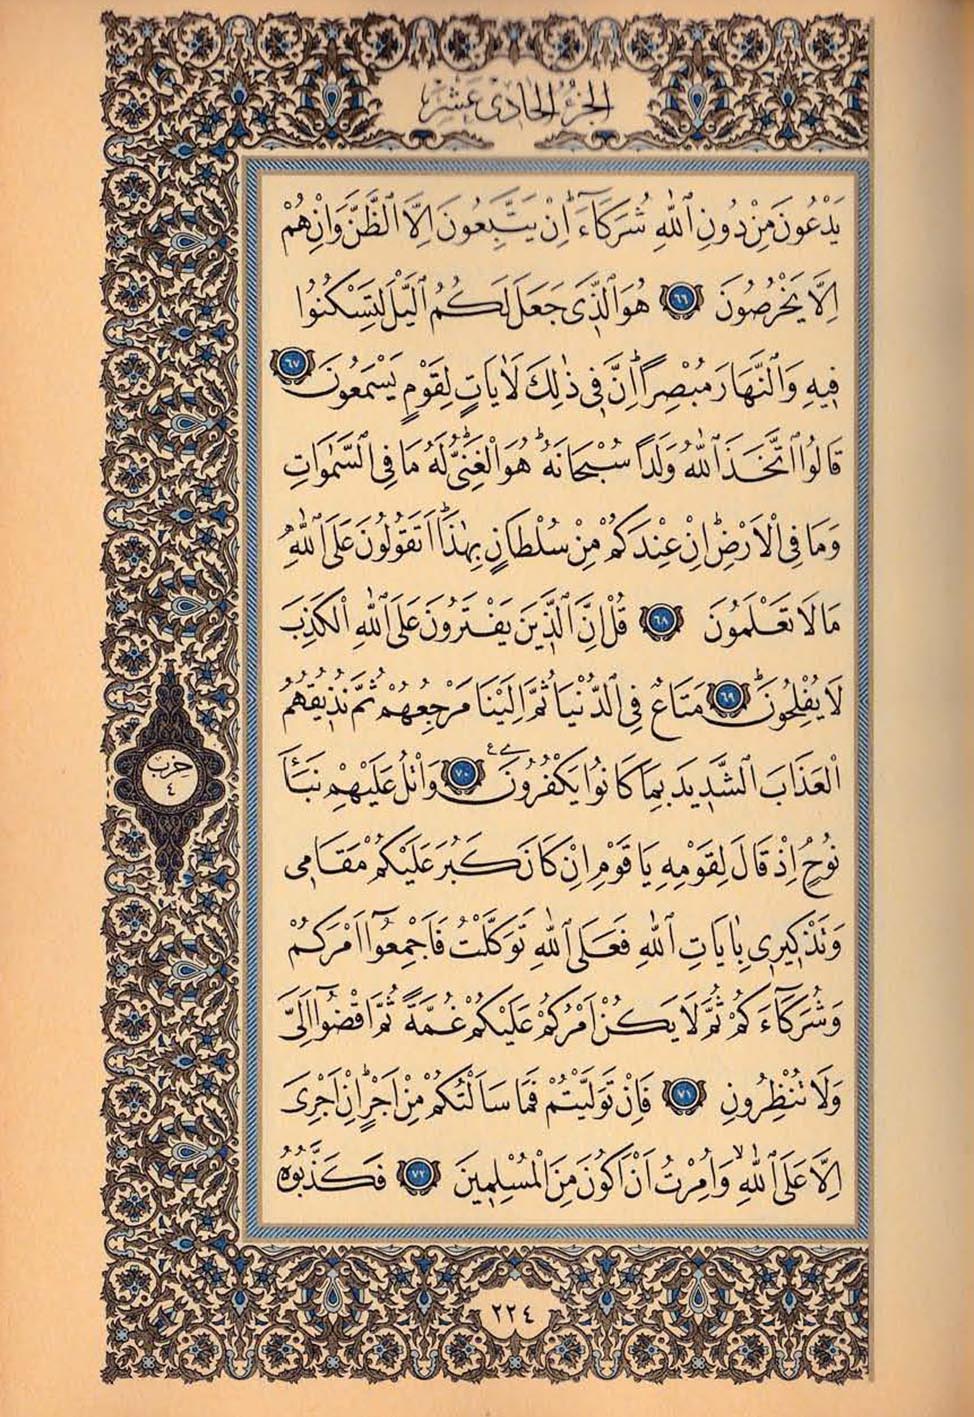 الجزء الحادى عشر
يَدْعُونَ مِنْ دُونِ اللّٰهِ شُرَكَٓاءَۜ اِنْ يَتَّبِعُونَ اِلَّا الظَّنَّ وَاِنْ هُمْ
اِلَّا يَخْرُصُونَ ﴿٦٦﴾ هُوَ الَّذ۪ي جَعَلَ لَكُمُ الَّيْلَ لِتَسْكُنُوا
ف۪يهِ وَالنَّهَارَ مُبْصِرًاۜ اِنَّ ف۪ي ذٰلِكَ لَاٰيَاتٍ لِقَوْمٍ يَسْمَعُونَ ﴿٦٧﴾
قَالُوا اتَّخَذَ اللّٰهُ وَلَدًا سُبْحَانَهُۜ هُوَ الْغَنِيُّۜ لَهُ مَا فِي السَّمٰوَاتِ
وَمَا فِي الْاَرْضِۜ اِنْ عِنْدَكُمْ مِنْ سُلْطَانٍ بِهٰذَاۜ اَتَقُولُونَ عَلَى اللّٰهِ
مَا لَا تَعْلَمُونَ ﴿٦٨﴾ قُلْ اِنَّ الَّذ۪ينَ يَفْتَرُونَ عَلَى اللّٰهِ الْكَذِبَ
لَا يُفْلِحُونَۜ ﴿٦٩﴾ مَتَاعٌ فِي الدُّنْيَا ثُمَّ اِلَيْنَا مَرْجِعُهُمْ ثُمَّ نُذ۪يقُهُمُ
الْعَذَابَ الشَّد۪يدَ بِمَا كَانُوا يَكْفُرُونَ ﴿٧٠﴾ وَاتْلُ عَلَيْهِمْ نَبَاَ
حزب ٤
نُوحٍۢ اِذْ قَالَ لِقَوْمِه۪ يَا قَوْمِ اِنْ كَانَ كَبُرَ عَلَيْكُمْ مَقَام۪ي
وَتَذْك۪ير۪ي بِاٰيَاتِ اللّٰهِ فَعَلَى اللّٰهِ تَوَكَّلْتُ فَاَجْمِعُٓوا اَمْرَكُمْ
وَشُرَكَٓاءَكُمْ ثُمَّ لَا يَكُنْ اَمْرُكُمْ عَلَيْكُمْ غُمَّةً ثُمَّ اقْضُٓوا اِلَيَّ
وَلَا تُنْظِرُونِ ﴿٧١﴾ فَاِنْ تَوَلَّيْتُمْ فَمَا سَاَلْتُكُمْ مِنْ اَجْرٍۜ اِنْ اَجْرِيَ
اِلَّا عَلَى اللّٰهِۙ وَاُمِرْتُ اَنْ اَكُونَ مِنَ الْمُسْلِم۪ينَ ﴿٧٢﴾ فَكَذَّبُوهُ
٢٢٤